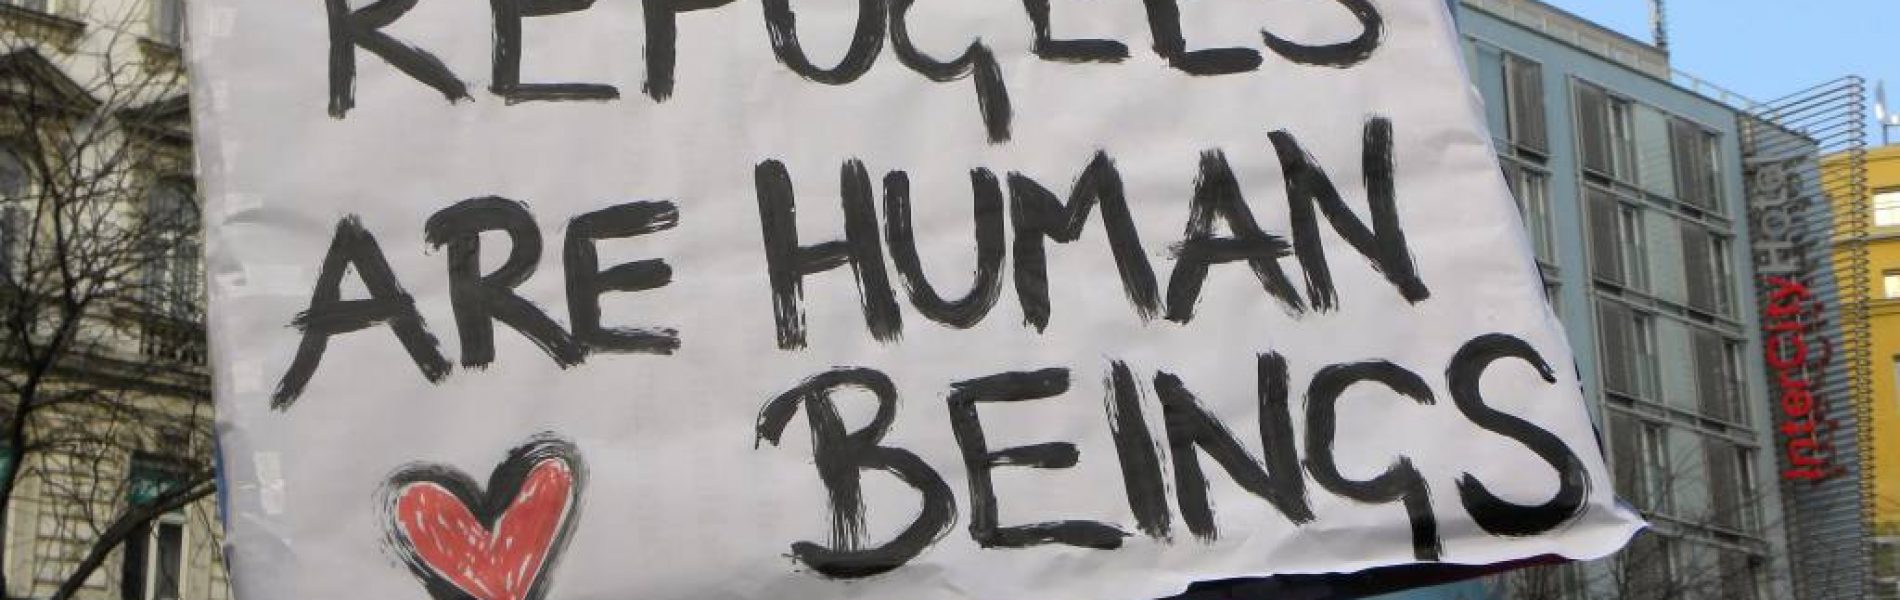 REFUGEES
ARE HUMAN
BEINGS
InterCity Hotel